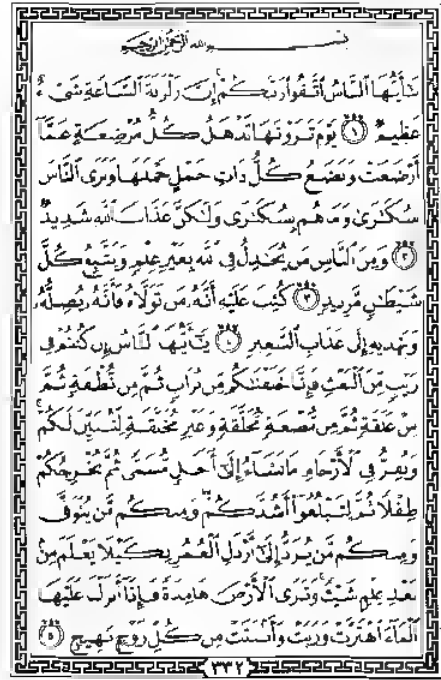 بسم الله الرحمن الرحيم
يَٰٓأَيُّهَا ٱلنَّاسُ ٱتَّقُوا۟ رَبَّكُمْ ۚ إِنَّ زَلْزَلَةَ ٱلسَّاعَةِ شَىْءٌ
عَظِيمٌ ١ يَوْمَ تَرَوْنَهَا تَذْهَلُ كُلُّ مُرْضِعَةٍ عَمَّآ
أَرْضَعَتْ وَتَضَعُ كُلُّ ذَاتِ حَمْلٍ حَمْلَهَا وَتَرَى ٱلنَّاسَ
سُكَٰرَىٰ وَمَا هُم بِسُكَٰرَىٰ وَلَٰكِنَّ عَذَابَ ٱللَّهِ شَدِيدٌ
٢ وَمِنَ ٱلنَّاسِ مَن يُجَٰدِلُ فِى ٱللَّهِ بِغَيْرِ عِلْمٍ وَيَتَّبِعُ كُلَّ
شَيْطَٰنٍ مَّرِيدٍ ٣ كُتِبَ عَلَيْهِ أَنَّهُۥ مَن تَوَلَّاهُ فَأَنَّهُۥ يُضِلُّهُۥ
وَيَهْدِيهِ إِلَىٰ عَذَابِ ٱلسَّعِيرِ ٤ يَٰٓأَيُّهَا ٱلنَّاسُ إِن كُنتُمْ فِى
رَيْبٍ مِّنَ ٱلْبَعْثِ فَإِنَّا خَلَقْنَٰكُم مِّن تُرَابٍ ثُمَّ مِن نُّطْفَةٍ ثُمَّ
مِنْ عَلَقَةٍ ثُمَّ مِن مُّضْغَةٍ مُّخَلَّقَةٍ وَغَيْرِ مُخَلَّقَةٍ لِّنُبَيِّنَ لَكُمْ ۚ
وَنُقِرُّ فِى ٱلْأَرْحَامِ مَا نَشَآءُ إِلَىٰٓ أَجَلٍ مُّسَمًّى ثُمَّ نُخْرِجُكُمْ
طِفْلًا ثُمَّ لِتَبْلُغُوٓا۟ أَشُدَّكُمْ ۖ وَمِنكُم مَّن يُتَوَفَّىٰ
وَمِنكُم مَّن يُرَدُّ إِلَىٰٓ أَرْذَلِ ٱلْعُمُرِ لِكَيْلَا يَعْلَمَ مِنۢ
بَعْدِ عِلْمٍ شَيْـًٔا ۚ وَتَرَى ٱلْأَرْضَ هَامِدَةً فَإِذَآ أَنزَلْنَا عَلَيْهَا
ٱلْمَآءَ ٱهْتَزَّتْ وَرَبَتْ وَأَنۢبَتَتْ مِن كُلِّ زَوْجٍۭ بَهِيجٍ ٥
٣٣٢